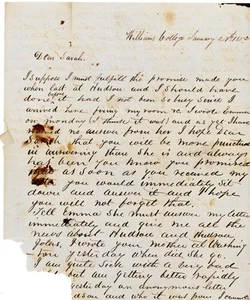 Williams College January 28th 185
Dear Sarah.
I suppose I must fulfill the promise made you
when last at Hudson and I should have
done it before had I not been so busy since I
arrived here fixing my room. I wrote
on monday (I think it was) and as yet I have
no answer from her I hope Dear
Sarah that you will be more punctual
in answering than she is and always
has been you know you promised
as soon as you received my
you would immediately sit
down and answer it and I hope
you will not forget that.
Tell Emma She must answer my letter
immediately and give me all the
news about Hudson and Hudson
folks, I wrote your mother at
yesterday when did She go.
I am quite Sick with a very bad
but am getting better rapidly
yesterday an anonymous letter
and who it was from I